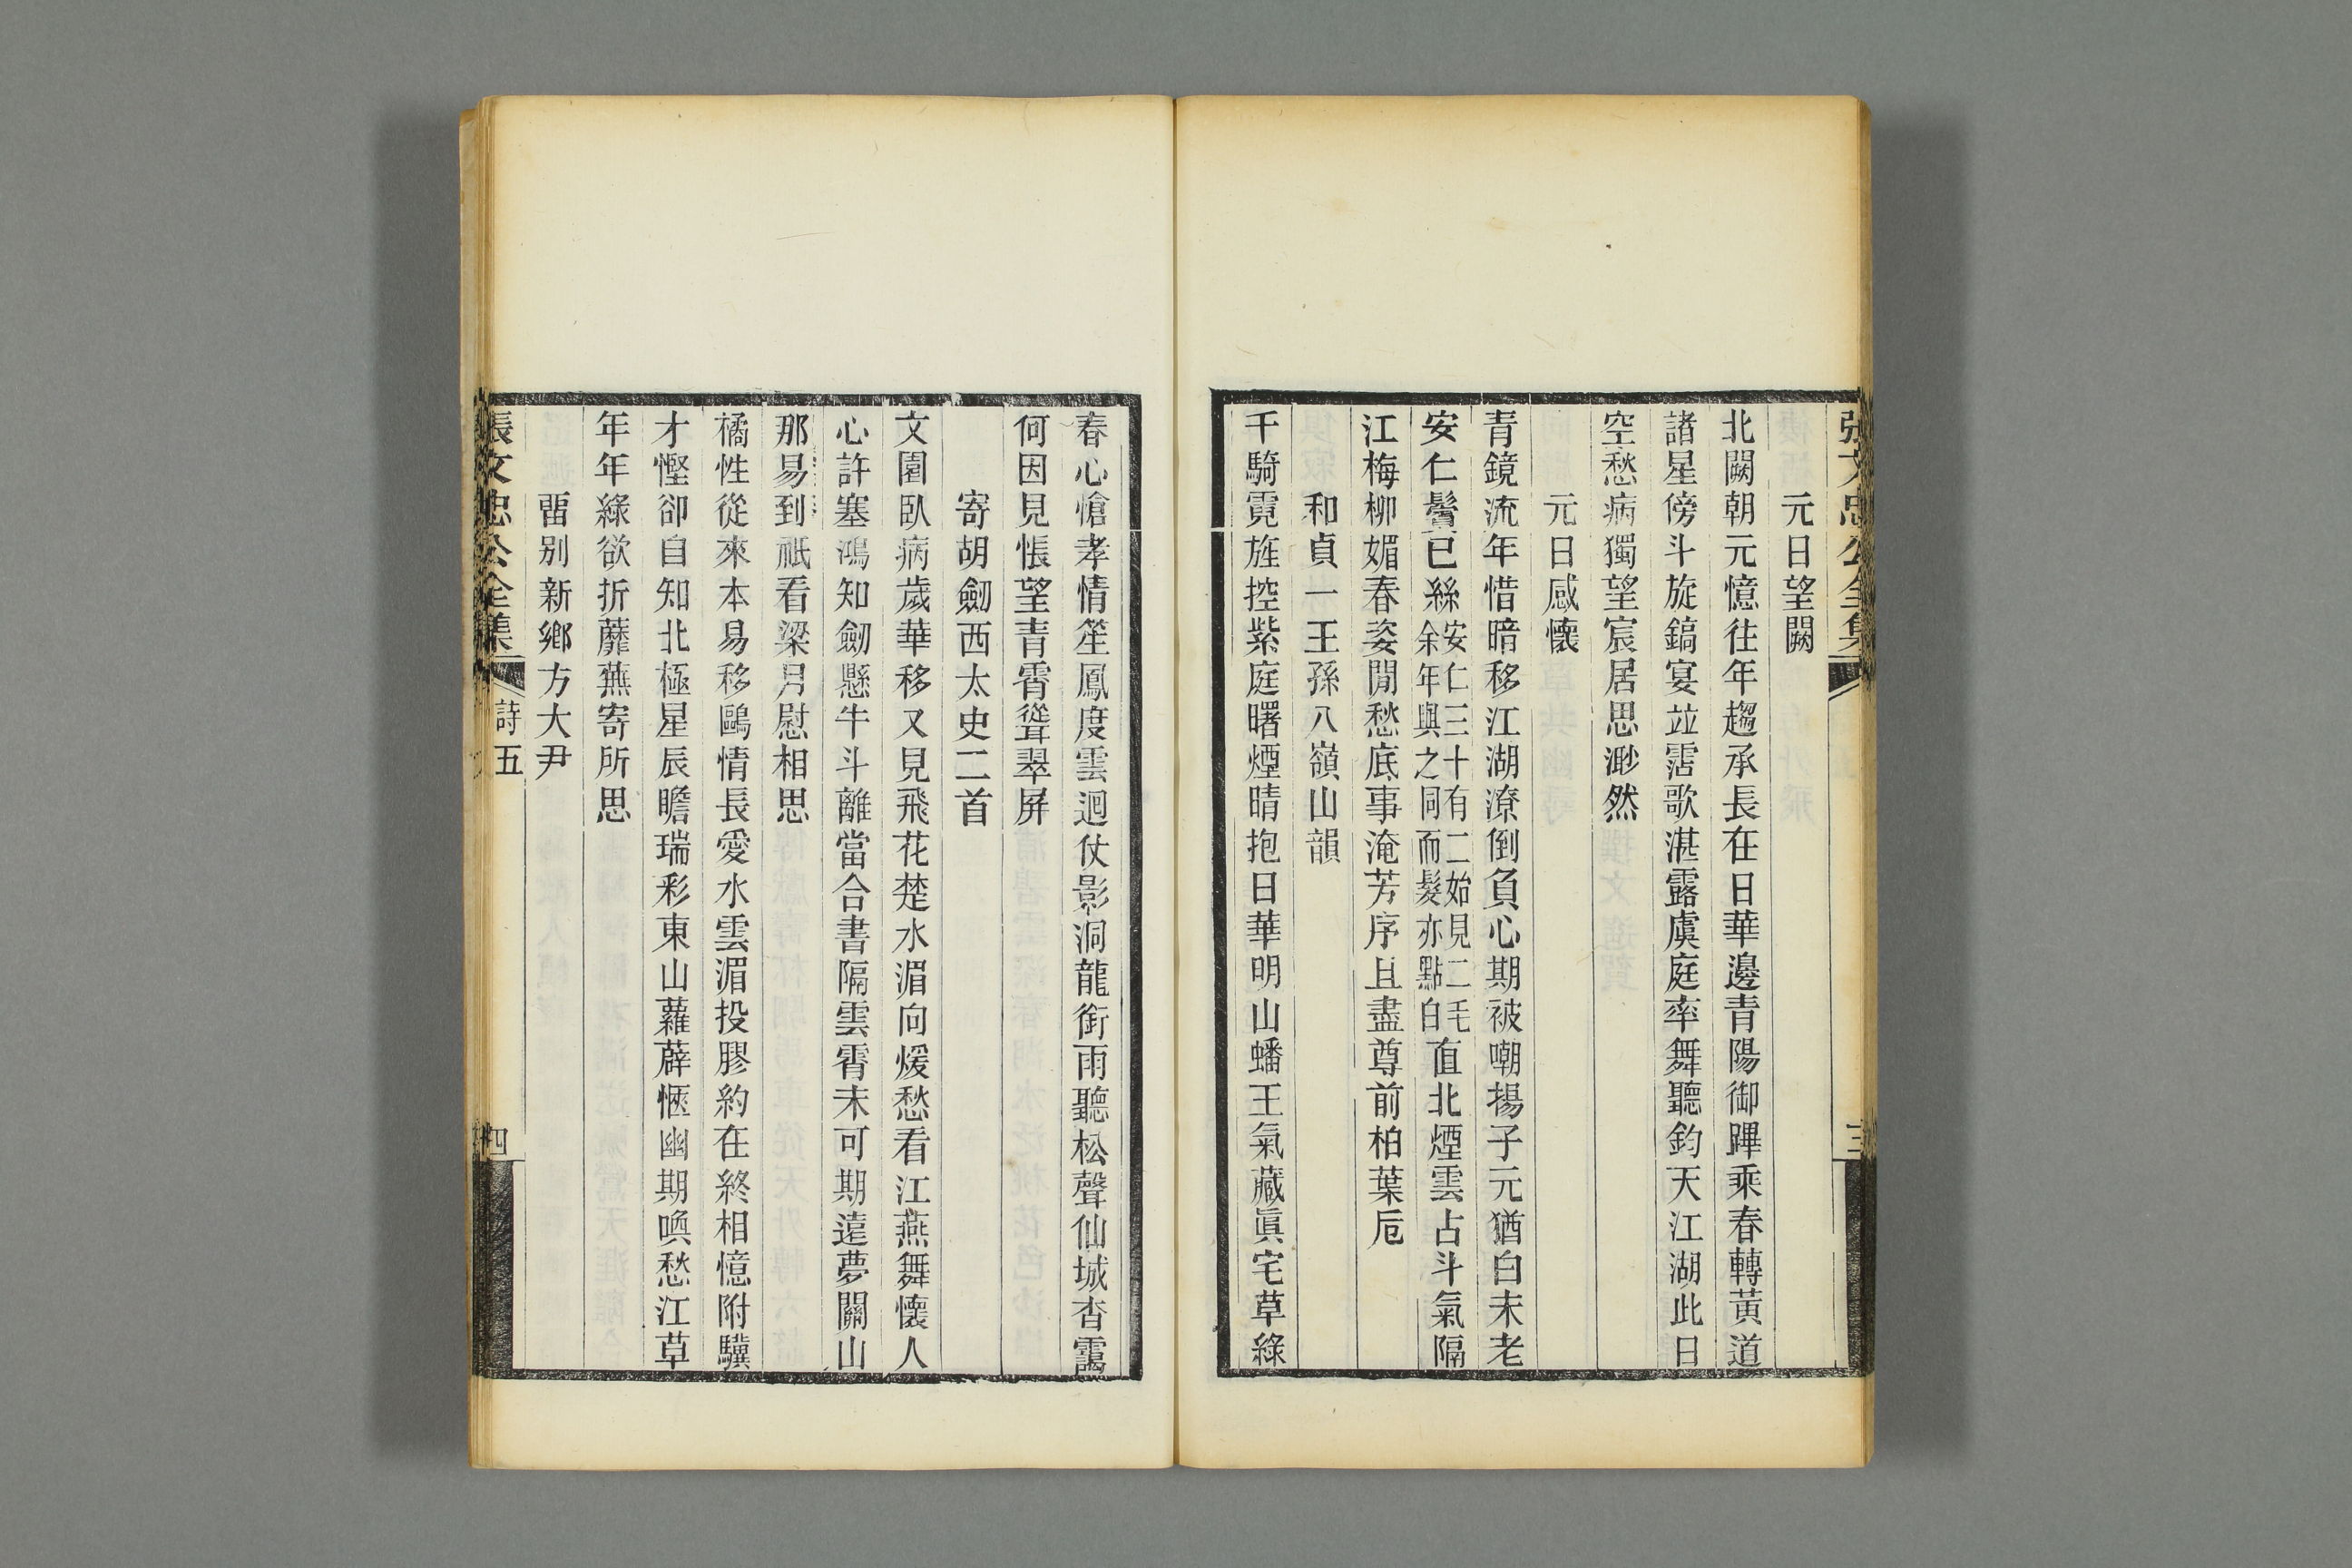 張文忠公全集
三
元日望闕
北闕朝元憶往年趨承長在日華邊青陽御蹕乘春轉黃道
諸星傍斗旋鎬宴竝霑歌湛露虞庭率舞聽鈞天江湖此日
空愁病獨望宸居思渺然
元日感懷
青鏡流年惜暗移江湖潦倒負心期被嘲揚子元猶白未老
安仁鬢已絲安仁三十有二始見二毛余年與之同而髮亦點白直北煙雲占斗氣隔
江梅柳媚春姿閒愁底事淹芳序且盡尊前柏葉卮
和貞一王孫八嶺山韻
千騎霓旌控紫庭曙煙晴抱日華明山蟠王氣藏眞宅草綠
春心愴孝情笙鳳度雲迴仗影洞龍銜雨聽松聲仙城杳靄
何因見悵望青霄聳翠屏
寄胡劒西太史二首
文園臥病歲華移又見飛花楚水湄向煖愁看江燕舞懷人
心許塞鴻知劒懸牛斗離當合書隔雲霄未可期遠夢關山
那易到祇看梁月慰相思
橘性從來本易移鷗情長愛水雲湄投膠約在終相憶附驥
才慳卻自知北極星辰瞻瑞彩東山蘿薜愜幽期喚愁江草
年年綠欲折蘼蕪寄所思
畱別新鄉方大尹
張文忠公全集
詩五
四